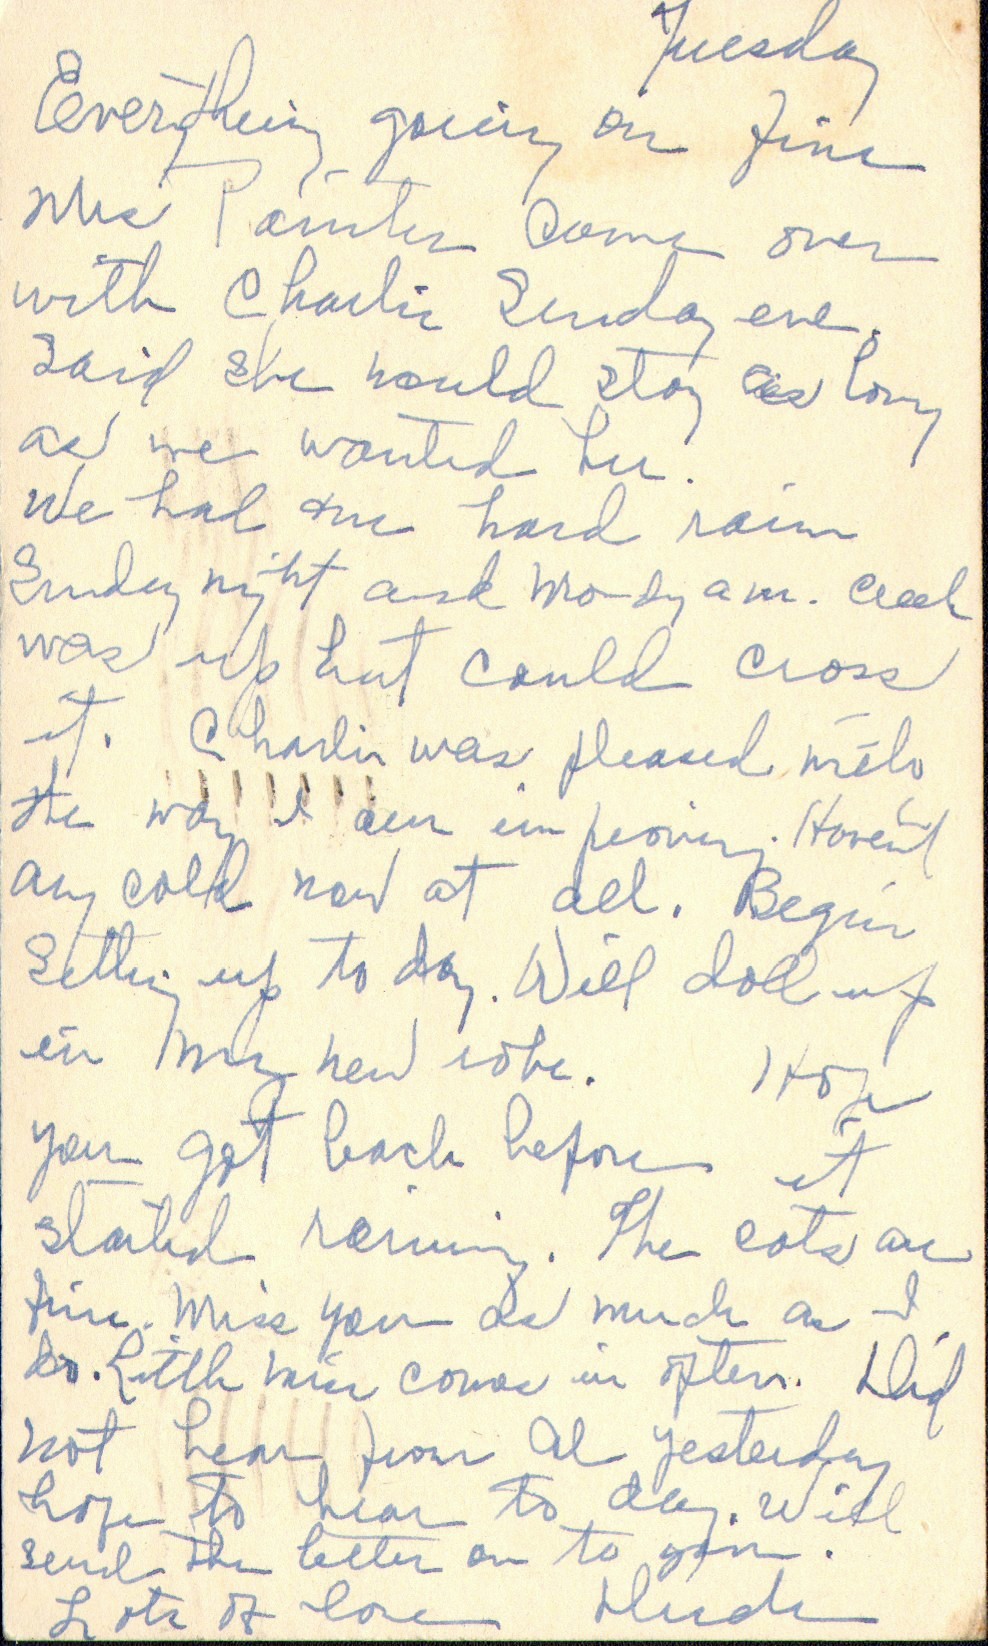 Tuesday
Everything going on fine
Mrs Painter came over
with Charlie Sunday eve.
Said she would stay as long
as we wanted her.
We had one hard rain
Sunday night and Monday am. creek
was up but could cross
it. Charlie was pleased with
the way I am improving. Haven't
any cold now at all. Begin
Setting up to day. Will doll up
in my new robe. Hope
you got back before it
started raining. The cats are
fine. Miss you as much as I
do. Little miss comes in often. Did
not hear from Al yesterday
hope to hear to day. Will
send the letter on to you.
Lots of love